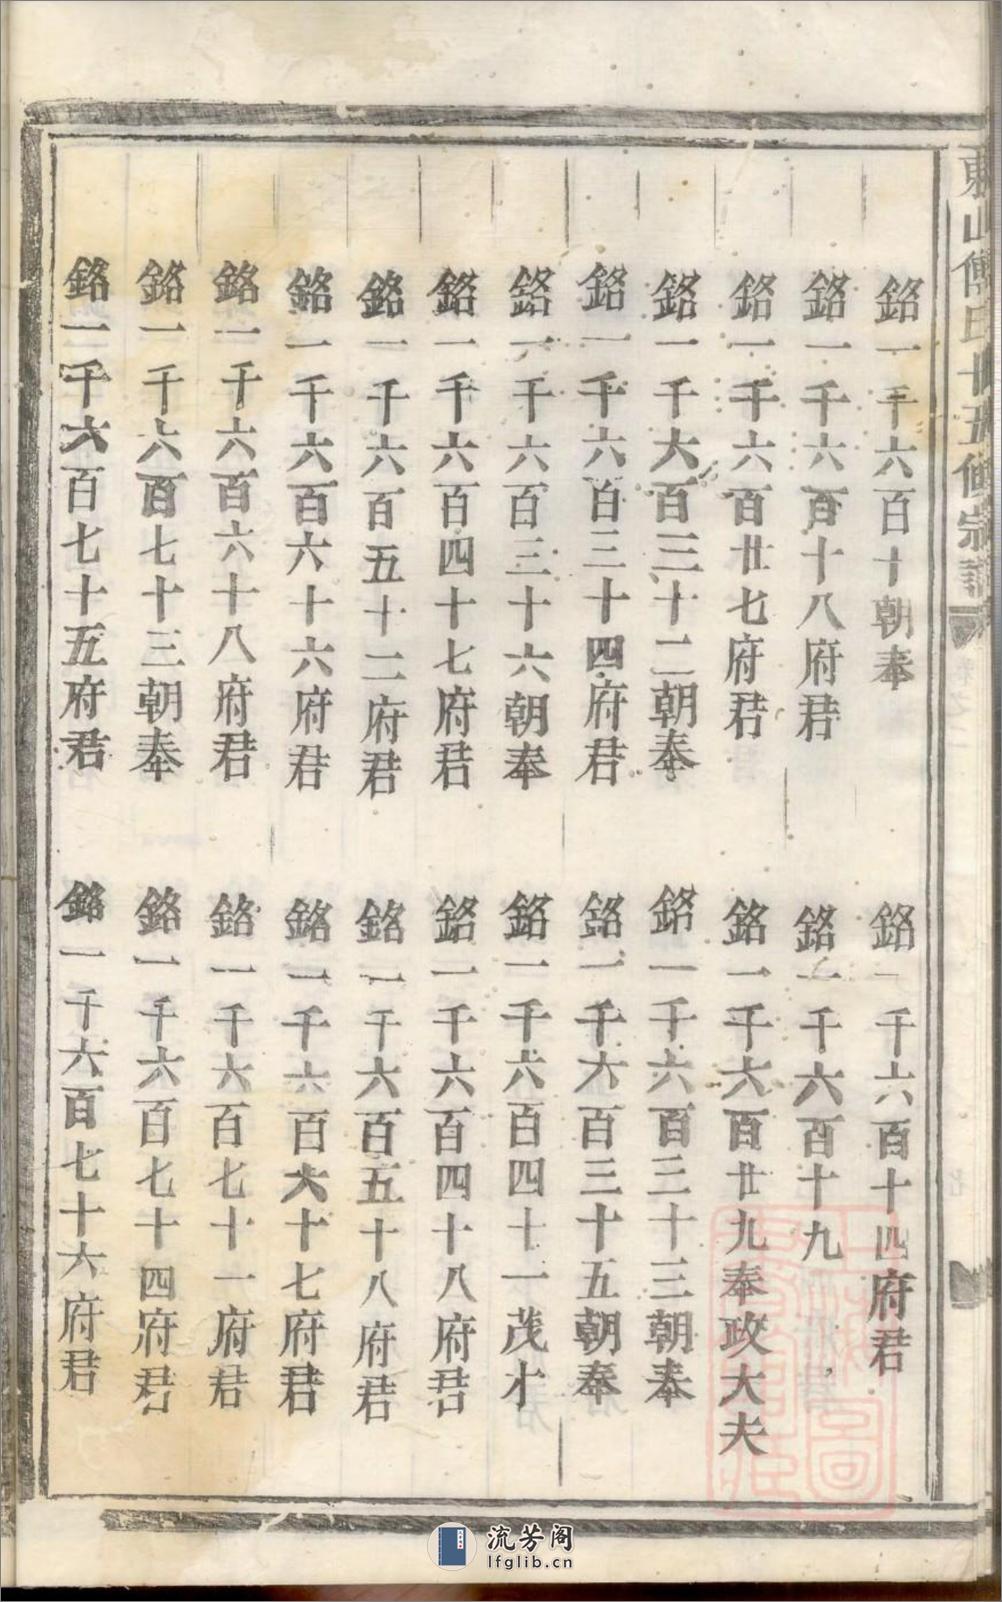 東山傅氏十五修宗譜
銘一千六百十朝奉
銘一千六百十八府君
銘一千六百廿七府君
銘一千六百三十二朝奉
銘一千六百三十四府君
銘一千六百三十六朝奉
銘一千六百四十七府君
銘一千六百五十二府君
銘一千六百六十六府君
銘一千六百六十八府君
銘一千六百七十三朝奉
銘一千六百七十五府君
銘一千六百十四府君
銘一千六百十九
銘一千六百廿九奉政大夫
銘一千六百三十三朝奉
銘一千六百三十五朝奉
銘一千六百四十一茂才
銘一千六百四十八府君
銘一千六百五十八府君
銘一千六百六十七府君
銘一千六百七十一府君
銘一千六百七十四府君
銘一千六百七十六府君
流芳阁
lfglib.cn